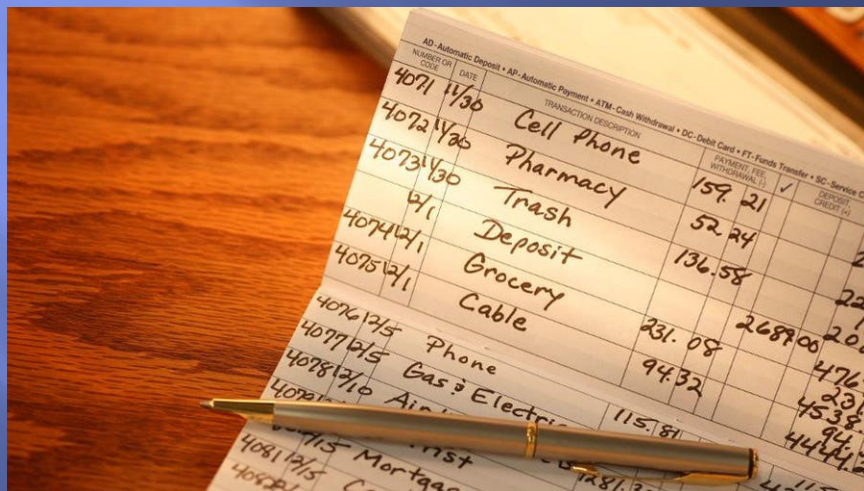 AD-Automatic Deposit • AP-Automatic Payment • ATM-Cash Withdrawal • DC-Debit Card • FT-Funds Transfer • SC-Service
NUMBER OR CODE DATE TRANSACTION DESCRIPTION PAYMENT, FEE, WITHDRAWAL (-) ✓ DEPOSIT, CREDIT (+)
4071 11/30 Cell Phone 159.21
4072 11/30 Pharmacy 52.24
4073 11/30 Trash 136.58
12/1 Deposit 2689.00
4074 12/1 Grocery 231.08
4075 12/1 Cable 94.32
4076 12/5 Phone 115.81
4077 12/5 Gas & Electric
4078 12/10
4081 12/5 Mortga